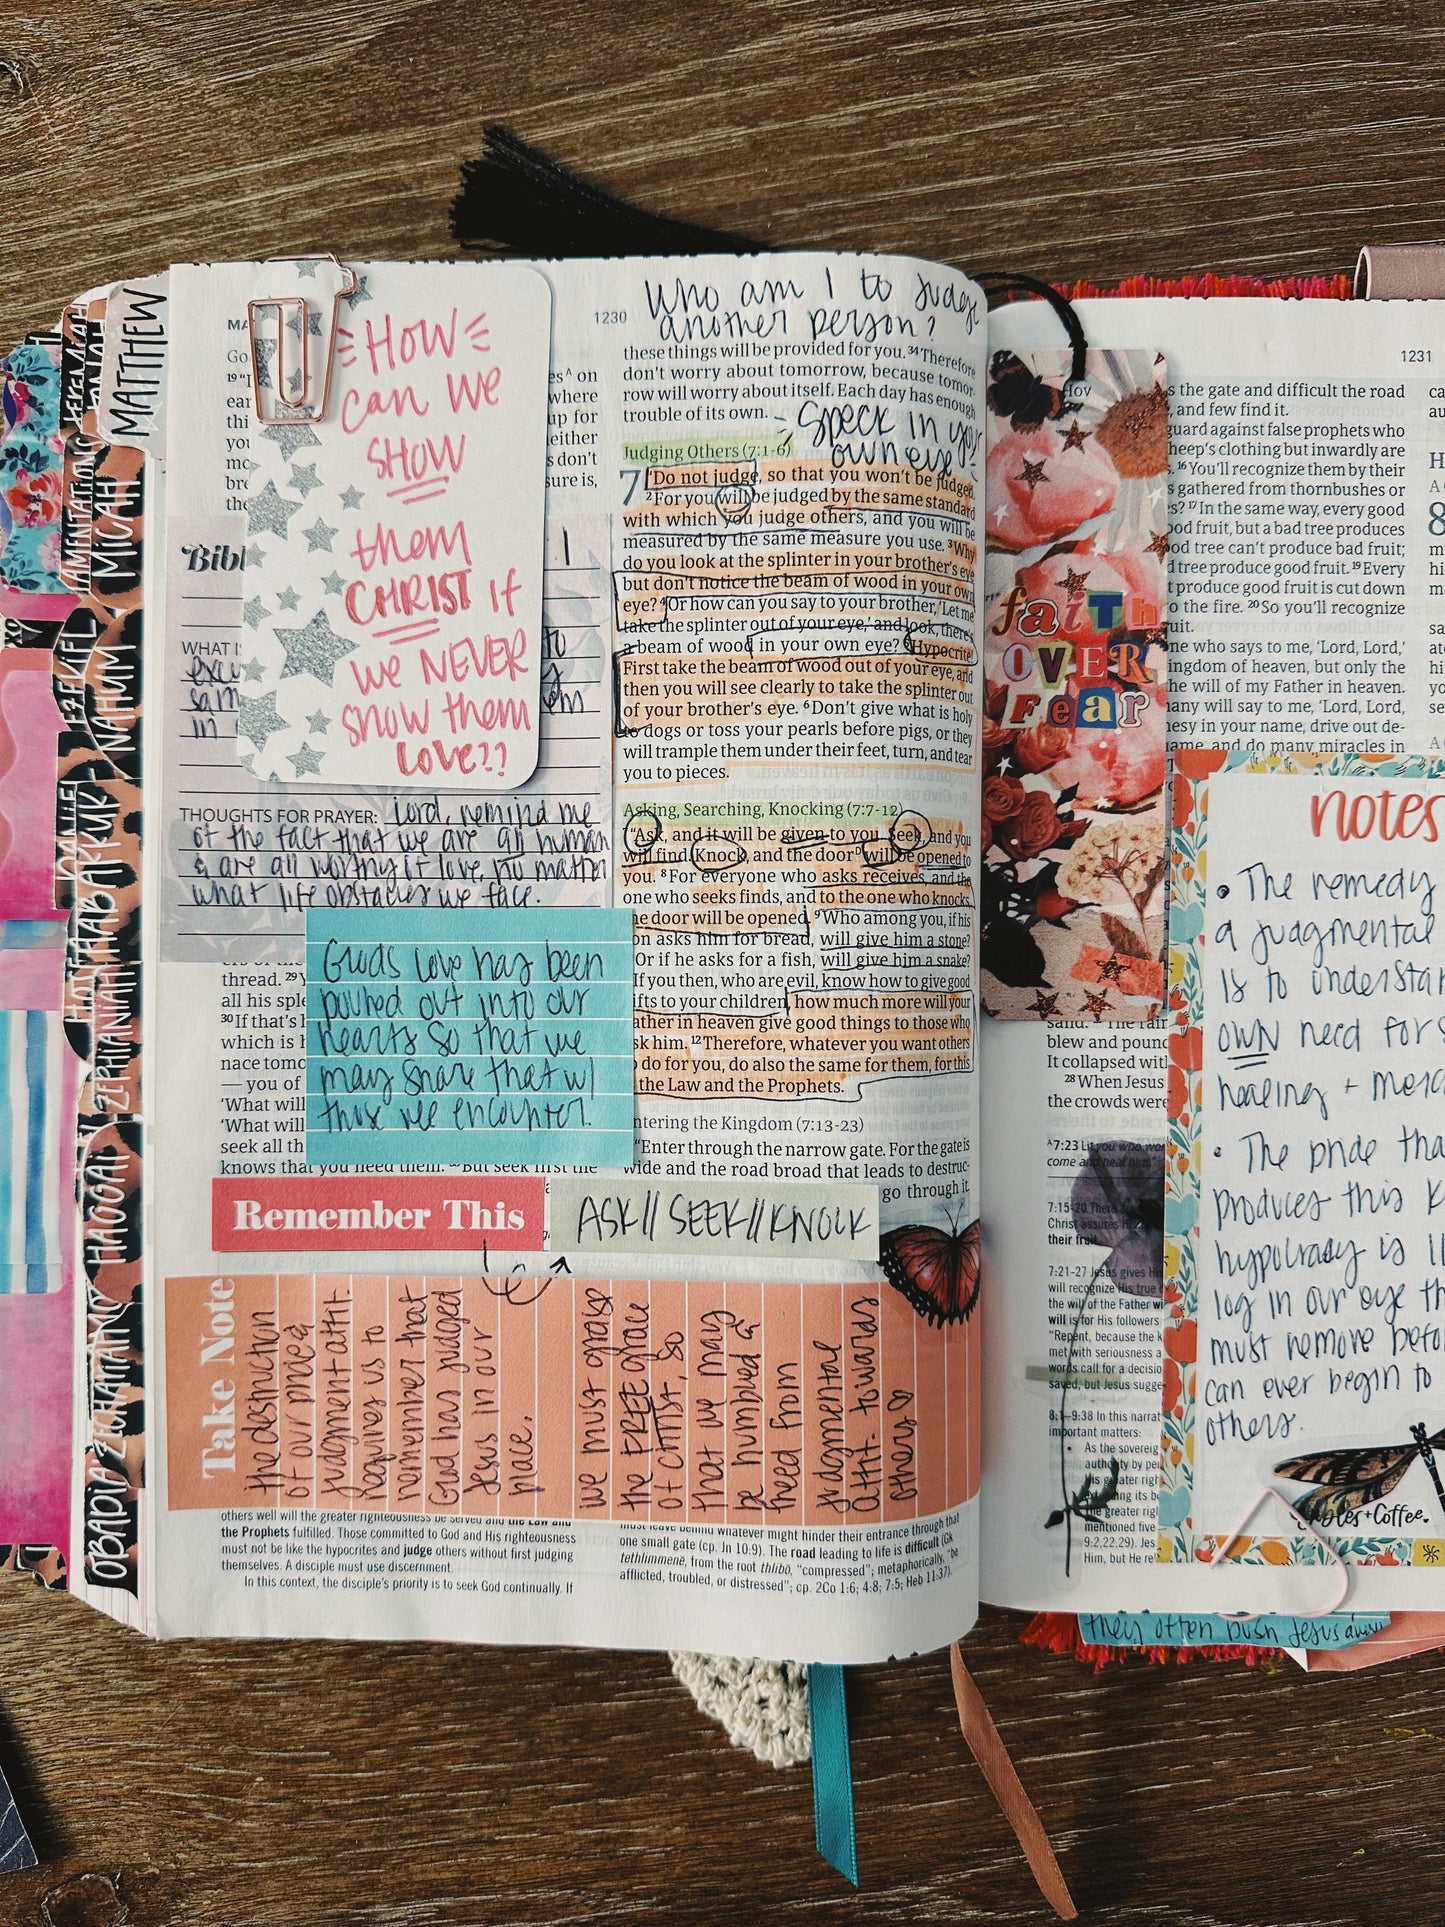 MATTHEW
LAMENTATIONS
MICAH
EZEKIEL
NAHUM
DANIEL
HABAKKUK
ZEPHANIAH
HAGGAI
ZECHARIAH
OBADIAH
≥HOW≤
can we
SHOW
them
CHRIST if
we NEVER
show them
LOVE??
es^A on
where
up for
neither
s don't
sure is,
THOUGHTS FOR PRAYER: Lord, remind me
of the fact that we are all human
& are all worthy of love, no matter
what life obstacles we face.
God's love has been
poured out into our
hearts so that we
may share that w/
those we encounter.
thread. 29
all his sple
30 If that's h
which is h
nace tomo
—you of
'What will
'What will
seek all th
knows that you need them. But seek first the
Remember This
ASK//SEEK//KNOCK
Take Note
the destruction
of our pride &
judgment attit.
requires us to
remember that
God has judged
Jesus in our
place.
we must grasp
the FREE grace
of Christ, so
that we may
be humbled &
freed from
judgmental
attit. towards
others ♡
others well will the greater righteousness be served and the Law and
the Prophets fulfilled. Those committed to God and His righteousness
must not be like the hypocrites and judge others without first judging
themselves. A disciple must use discernment.
In this context, the disciple's priority is to seek God continually. If
1230
Who am I to judge
another person?
these things will be provided for you. 34 Therefore
don't worry about tomorrow, because tomor-
row will worry about itself. Each day has enough
trouble of its own.
Speck in your
own eye
Judging Others (7:1-6)
7 "Do not judge, so that you won't be judged.
2 For you will be judged by the same standard
with which you judge others, and you will be
measured by the same measure you use. 3 Why
do you look at the splinter in your brother's eye
but don't notice the beam of wood in your own
eye? 4 Or how can you say to your brother, 'Let me
take the splinter out of your eye,' and look, there's
a beam of wood in your own eye? Hypocrite!
First take the beam of wood out of your eye, and
then you will see clearly to take the splinter out
of your brother's eye. 6 Don't give what is holy
to dogs or toss your pearls before pigs, or they
will trample them under their feet, turn, and tear
you to pieces.
Asking, Searching, Knocking (7:7-12)
"Ask, and it will be given to you. Seek, and you
will find. Knock, and the door^D will be opened to
you. 8 For everyone who asks receives, and the
one who seeks finds, and to the one who knocks,
he door will be opened. 9 Who among you, if his
on asks him for bread, will give him a stone?
Or if he asks for a fish, will give him a snake?
If you then, who are evil, know how to give good
ifts to your children, how much more will your
ather in heaven give good things to those who
sk him. 12 Therefore, whatever you want others
o do for you, do also the same for them, for this
the Law and the Prophets.
ntering the Kingdom (7:13-23)
"Enter through the narrow gate. For the gate is
wide and the road broad that leads to destruc-
go through it.
must leave behind whatever might hinder their entrance through that
one small gate (cp. Jn 10:9). The road leading to life is difficult (Gk
tethlimmenē, from the root thlibō, "compressed"; metaphorically, "be
afflicted, troubled, or distressed"; cp. 2Co 1:6; 4:8; 7:5; Heb 11:37).
FAITH
OVER
FEAR
1231
s the gate and difficult the road
, and few find it.
guard against false prophets who
heep's clothing but inwardly are
s. 16 You'll recognize them by their
s gathered from thornbushes or
s? 17 In the same way, every good
ood fruit, but a bad tree produces
od tree can't produce bad fruit;
d tree produce good fruit. 19 Every
produce good fruit is cut down
o the fire. 20 So you'll recognize
ruit.
ne who says to me, 'Lord, Lord,'
ingdom of heaven, but only the
he will of my Father in heaven.
any will say to me, 'Lord, Lord,
esy in your name, drive out de-
name, and do many miracles in
blew and pound
It collapsed with
28 When Jesus
the crowds were
^A 7:23
come and heal him."
7:15-20
Christ assures His
their fruit.
7:21-27 Jesus gives Hi
will recognize His true
the will of the Father wi
will is for His followers
"Repent, because the k
met with seriousness a
words call for a decisio
saved, but Jesus sugge
8:1–9:38 In this narrat
important matters:
• As the sovereig
authority by per
His greater righ
extending its b
the greater righ
mentioned five
9:2,22,29). Jes
Him, but He ref
notes
• The remedy
a judgmental
is to understan
OWN need for
healing + merc
• The pride tha
produces this k
hypocrasy is th
log in our eye th
must remove befo
can ever begin to
others.
+Coffee
they often push Jesus away